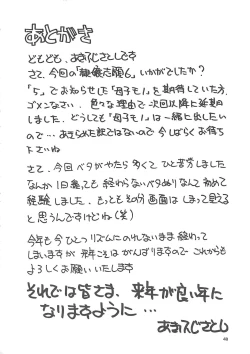 あとがき
どもども、あきふじさとしです
さて、今回の「　　志願6」いかがでしたか?
「5」でお知らせした「母子モノ」を期待していた方、
ゴメンなさい。色々な理由で次回以降に延期
しました。どうしても「母子モノ」は一緒に出したい
ので…あきらめた訳ではないので今しばらくお待ち
下さいね
さて、今回ベタがやたら多くてひと苦労しました
なんか1日塗っても終わらないベタぬりなんて初めて
経験しました。もっともその分画面はしまって見える
と思うんですけどね(笑)
今年も今ひとつリズムにのれないまま終わって
しまいますが来年こそはがんばりますのでこれからも
よろしくお願いいたします
それでは皆さま、来年が良い年に
なりますように…
あきふじさとし